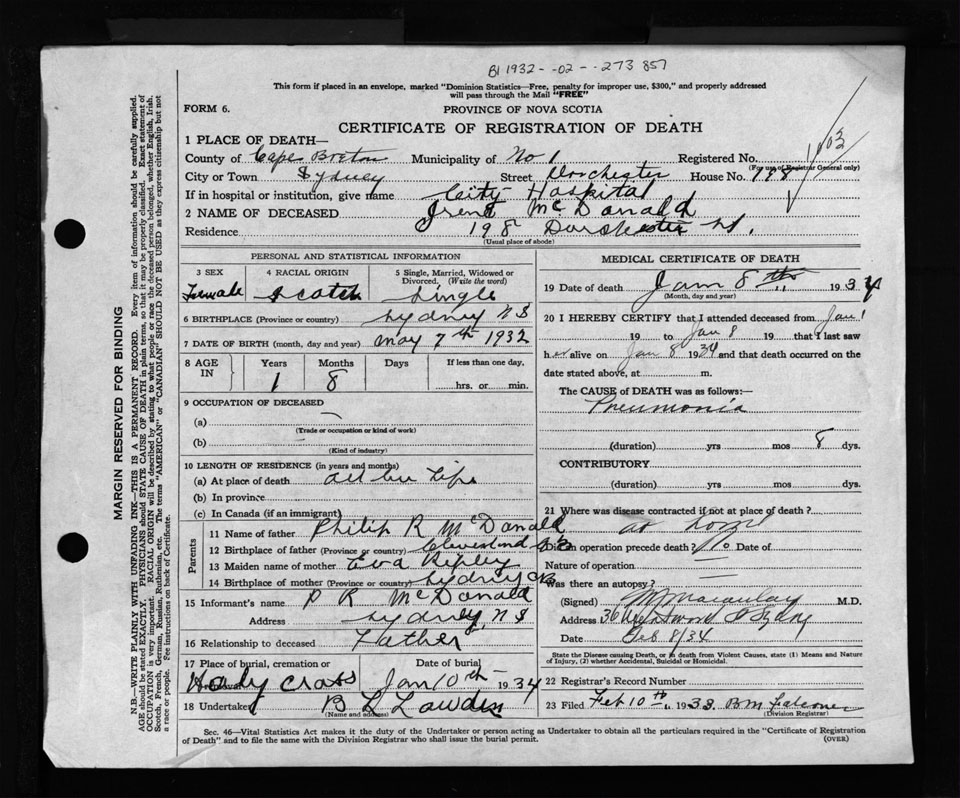 B1 1932- -02- -273 857
This form if placed in an envelope, marked "Dominion Statistics—Free, penalty for improper use, $300," and properly addressed
will pass through the Mail "FREE"
FORM 6.
PROVINCE OF NOVA SCOTIA
CERTIFICATE OF REGISTRATION OF DEATH
1 PLACE OF DEATH—
County of Cape Breton Municipality of No 1 Registered No.
(For use of Registrar General only)
City or Town Sydney Street Dorchester House No. 198
If in hospital or institution, give name City Hospital
2 NAME OF DECEASED Irene McDonald
Residence 198 Dorchester St.
(Usual place of abode)
PERSONAL AND STATISTICAL INFORMATION
3 SEX 4 RACIAL ORIGIN 5 Single, Married, Widowed or Divorced. (Write the word)
Female Scotch Single
6 BIRTHPLACE (Province or country) Sydney N S
7 DATE OF BIRTH (month, day and year) May 7th 1932
8 AGE IN Years Months Days If less than one day,
1 8 hrs. or min.
9 OCCUPATION OF DECEASED
(a) —
(Trade or occupation or kind of work)
(b) —
(Kind of industry)
10 LENGTH OF RESIDENCE (in years and months)
(a) At place of death all her life
(b) In province
(c) In Canada (if an immigrant)
Parents
11 Name of father Philip R McDonald
12 Birthplace of father (Province or country) Cleveland CB
13 Maiden name of mother Eva Ripley
14 Birthplace of mother (Province or country) Sydney CB
15 Informant's name P R McDonald
Address Sydney N S
16 Relationship to deceased Father
17 Place of burial, cremation or removal Date of burial
Holy Cross Jan 10th 1934
18 Undertaker B L Lowden
(Name and address)
MEDICAL CERTIFICATE OF DEATH
19 Date of death Jan 8th 1934
(Month, day and year)
20 I HEREBY CERTIFY that I attended deceased from Jan 1
19 to Jan 8 19 that I last saw
her alive on Jan 8 1934 and that death occurred on
date stated above, at m.
The CAUSE of DEATH was as follows:—
Pneumonia
(duration) yrs mos 8 dys.
CONTRIBUTORY
(duration) yrs mos dys.
21 Where was disease contracted if not at place of death?
at home
Did an operation precede death? No Date of
Nature of operation —
Was there an autopsy? —
(Signed) M Macaulay M.D.
Address 36 Sydney
Date Feb 8/34
State the Disease causing Death, or in death from Violent Causes, state (1) Means and Nature of Injury, (2) whether Accidental, Suicidal or Homicidal.
22 Registrar's Record Number
23 Filed Feb 10th 1933. BM Falconer
(Division Registrar)
Sec. 46—Vital Statistics Act makes it the duty of the Undertaker or person acting as Undertaker to obtain all the particulars required in the "Certificate of Registration
of Death" and to file the same with the Division Registrar who shall issue the burial permit.
(OVER)
MARGIN RESERVED FOR BINDING
N.B.—WRITE PLAINLY WITH UNFADING INK—THIS IS A PERMANENT RECORD. Every item of information should be carefully supplied.
AGE should be stated EXACTLY. PHYSICIANS should STATE CAUSE OF DEATH in plain terms, so that it may be properly classified. Exact statement of
OCCUPATION is very important. RACIAL ORIGIN will be described by stating to what people or race the deceased person belonged, whether English, Irish,
Scotch, French, German, Russian, Ruthenian, etc. The terms "AMERICAN" or "CANADIAN" SHOULD NOT BE USED as they express citizenship but not
a race or people. Fee instructions on back of Certificate.